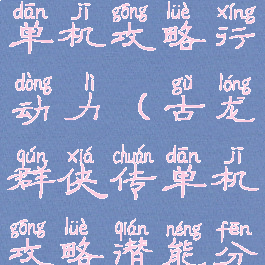 dān jī gōng lüè xíng
单机攻略行
dòng lì gǔ lóng
动力(古龙
qún xiá chuán dān jī
群侠传单机
gōng lüè qián néng fēn
攻略潜能分